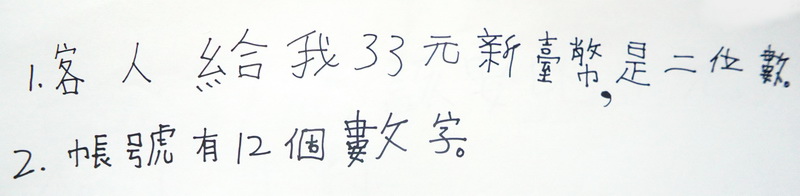 1.客人給我33元新臺幣,是二位數。
2.帳號有12個數字。